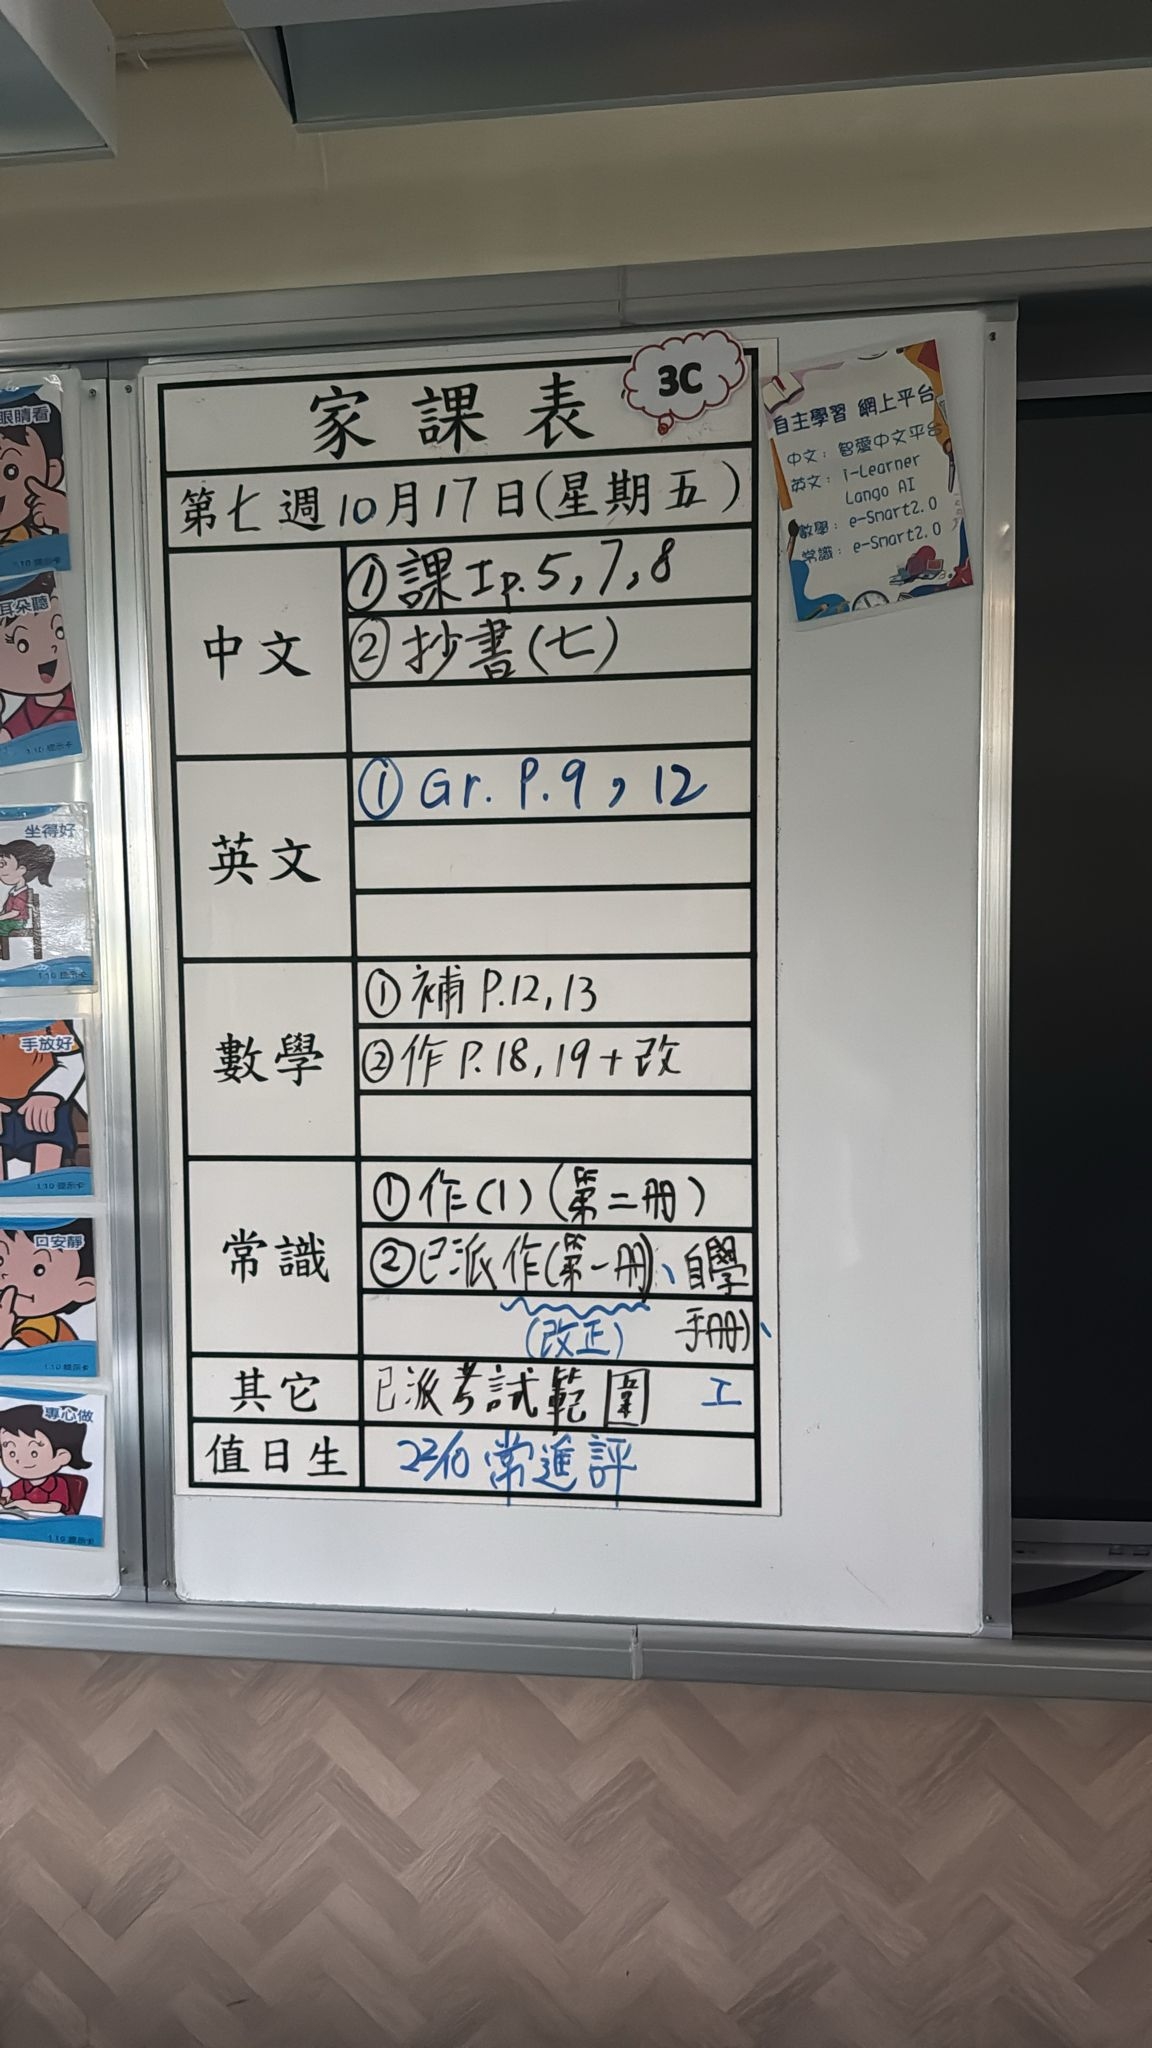 家課表
3C
第七週10月17日(星期五)
中文
①課工p.5,7,8
②抄書(七)
英文
①Gr. P.9,12
數學
①補 P.12,13
②作 P.18,19+改
常識
①作(1)(第二冊)
②已派作(第一冊)、自學
(改正) 手冊)、
其它
已派考試範圍 工
值日生
22/10 常進評
自主學習 網上平台
中文：智愛中文平台
英文：i-Learner
Lango AI
數學：e-Smart2.0
常識：e-Smart2.0
眼睛看
1.10 提示卡
耳朵聽
1.10 提示卡
坐得好
1.10 提示卡
手放好
1.10 提示卡
口安靜
1.10 提示卡
專心做
1.10 提示卡